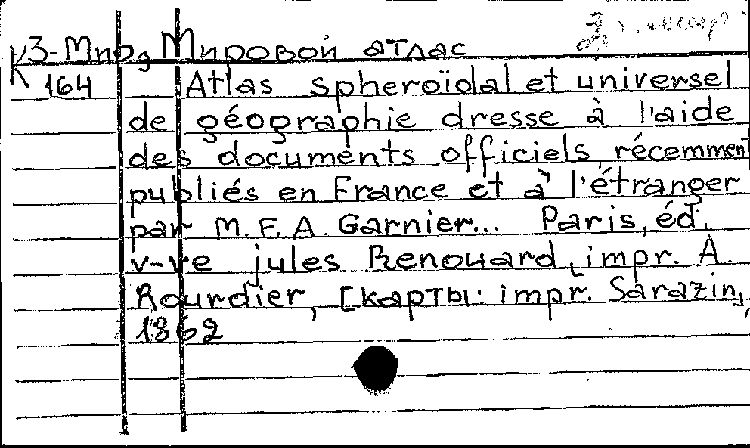 К3-Мир, Мировой атлас
164 Atlas spheroïdal et universel
de géographie dresse à l'aide
des documents officiels récemment
publiés en France et à l'étranger
par M. F. A. Garnier... Paris, éd.
v-ve jules Renouard, impr. A.
Bourdier, [карты: impr. Sarazin,
1862